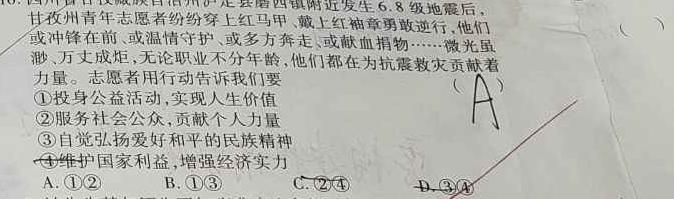 县磨西镇附近发生6.8级地震后,
甘孜州青年志愿者纷纷穿上红马甲、戴上红袖章勇敢逆行,他们
或冲锋在前、或温情守护、或多方奔走、或献血捐物……微光虽
渺、万丈成炬,无论职业不分年龄,他们都在为抗震救灾贡献着
力量。志愿者用行动告诉我们要
( A )
①投身公益活动,实现人生价值
②服务社会公众,贡献个人力量
③自觉弘扬爱好和平的民族精神
④维护国家利益,增强经济实力
A.①② B.①③ C.②④ D.③④